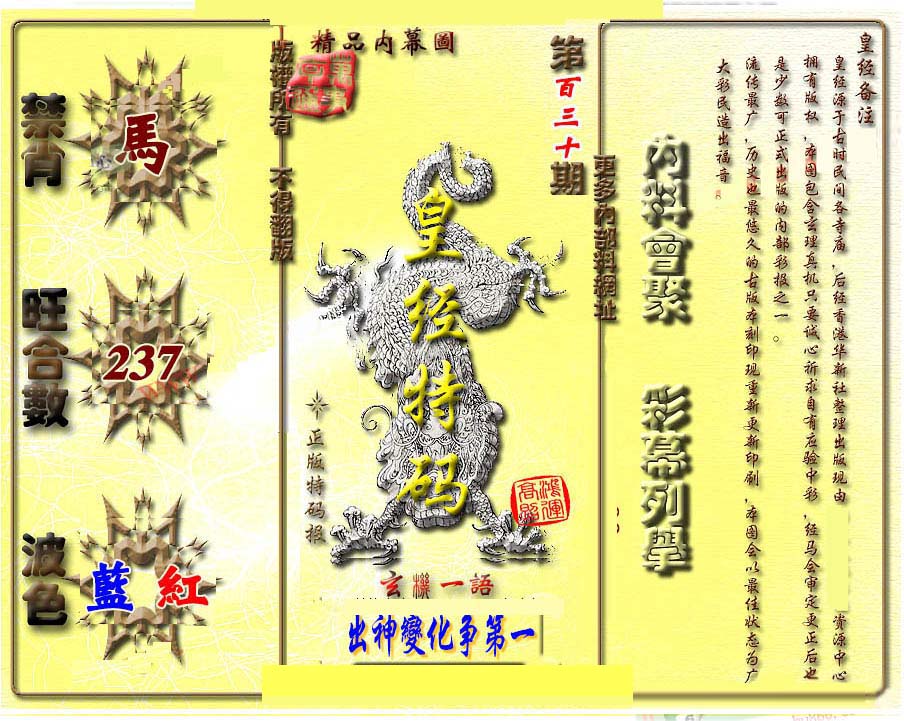 精品内幕圖
版權所有 不得翻版
第百三十期
禁肖
馬
旺合數
237
波色
藍 紅
皇经特码
正版特码报
鴻運高照
玄機一語
出神變化争第一
更多内部料網址
内料會聚
彩幕列舉
皇经备注
皇经源于古时民间各寺庙,后经香港华新社整理出版现由 资源中心
拥有版权,本图包含玄理真机只要诚心祈求自有应验中彩,经马会审定更正后也
是少数可正式出版的内部彩报之一。
流传最广,历史也最悠久的古版本刻印现重新更新印刷,本图会以最佳状态为广
大彩民造出福音